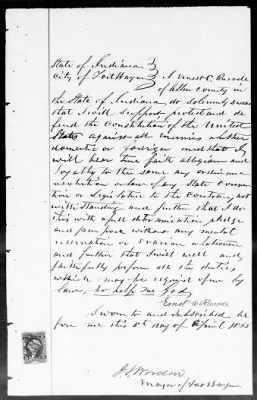 State of Indiana }
City of Fort Wayne } I Ernest C. Rurode
of Allen County in
the State of Indiana, do solemnly swear
that I will support protect and de
fend the Constitution of the United
States against all enemies whether
domestic or foreign and that I
will bear true faith allegiance and
loyalty to the same any ordinance
resolution or law of any State conven
tion or Legislature to the contrary not
withstanding and further that I do
this with a full determination, pledge
and purpose without any mental
reservation or evasion whatsoever
and further that I will well and
faithfully perform all the duties
which may be required of me by
law, so help me God.
Ernst C Rurode
Sworn to and Subscribed be
fore me this 5th day of April 1873
Mayor of Fort Wayne